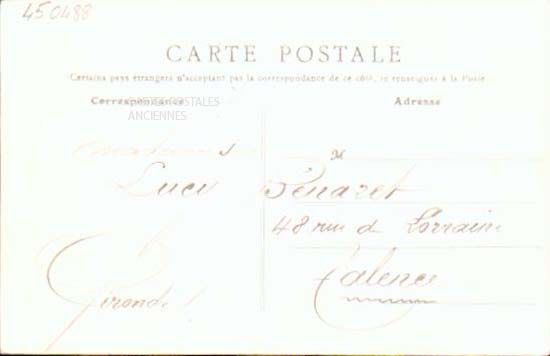 450488
CARTE POSTALE
Certains pays étrangers n'acceptant pas la correspondance de ce côté, se renseigner à la Poste
Correspondance
Adresse
CARTES POSTALES
ANCIENNES
M
48 rue de Lorraine
Talence
Gironde